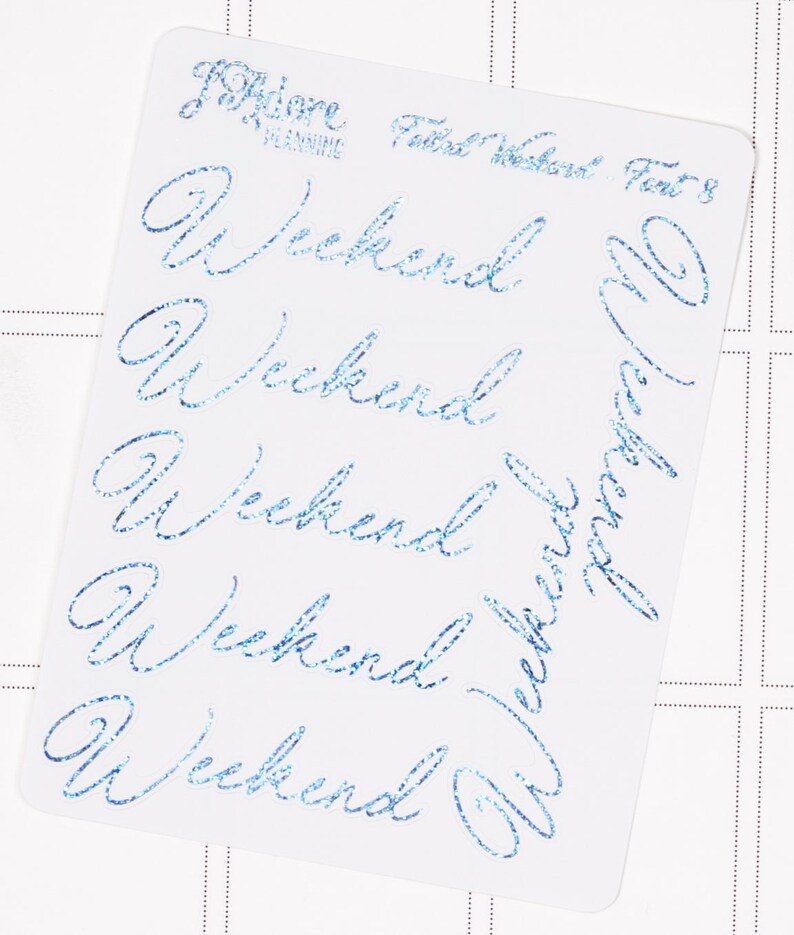 J'Adore
PLANNING
Foiled Weekend - Font 8
Weekend
Weekend
Weekend
Weekend
Weekend
Weekend
Weekend